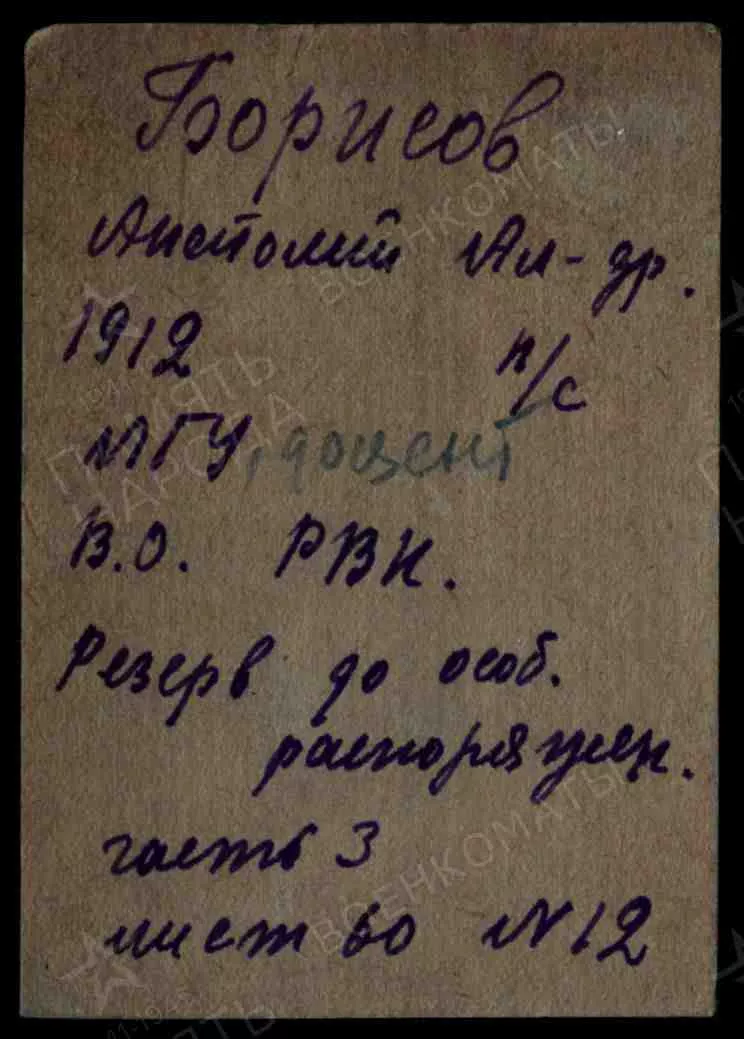 Борисов
Анатолий Ал-др.
1912 н/с
МГУ, доцент
В.О. РВК.
Резерв до особ.
распоряжен.
часть 3
лист 60 № 12
ПАМЯТЬ НАРОДА
ВОЕНКОМАТЫ